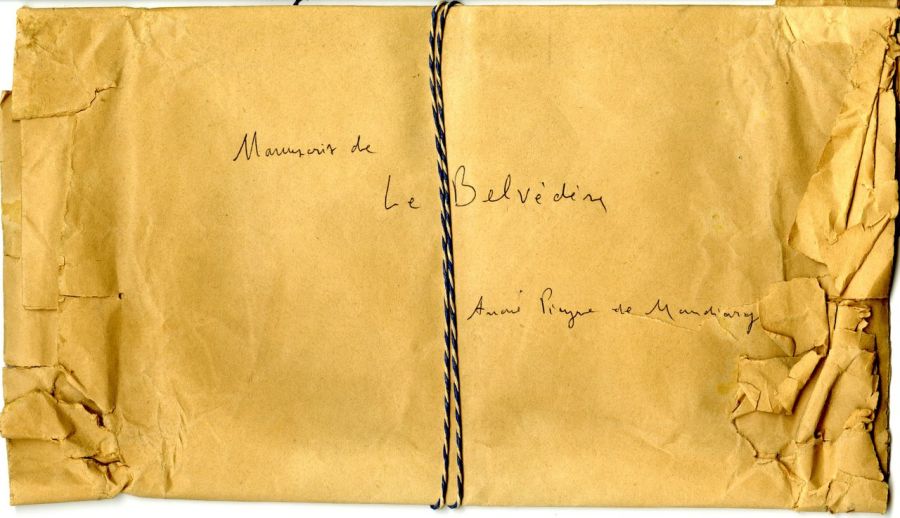 Manuscrit de
Le Belvédère
André Pieyre de Mandiargues